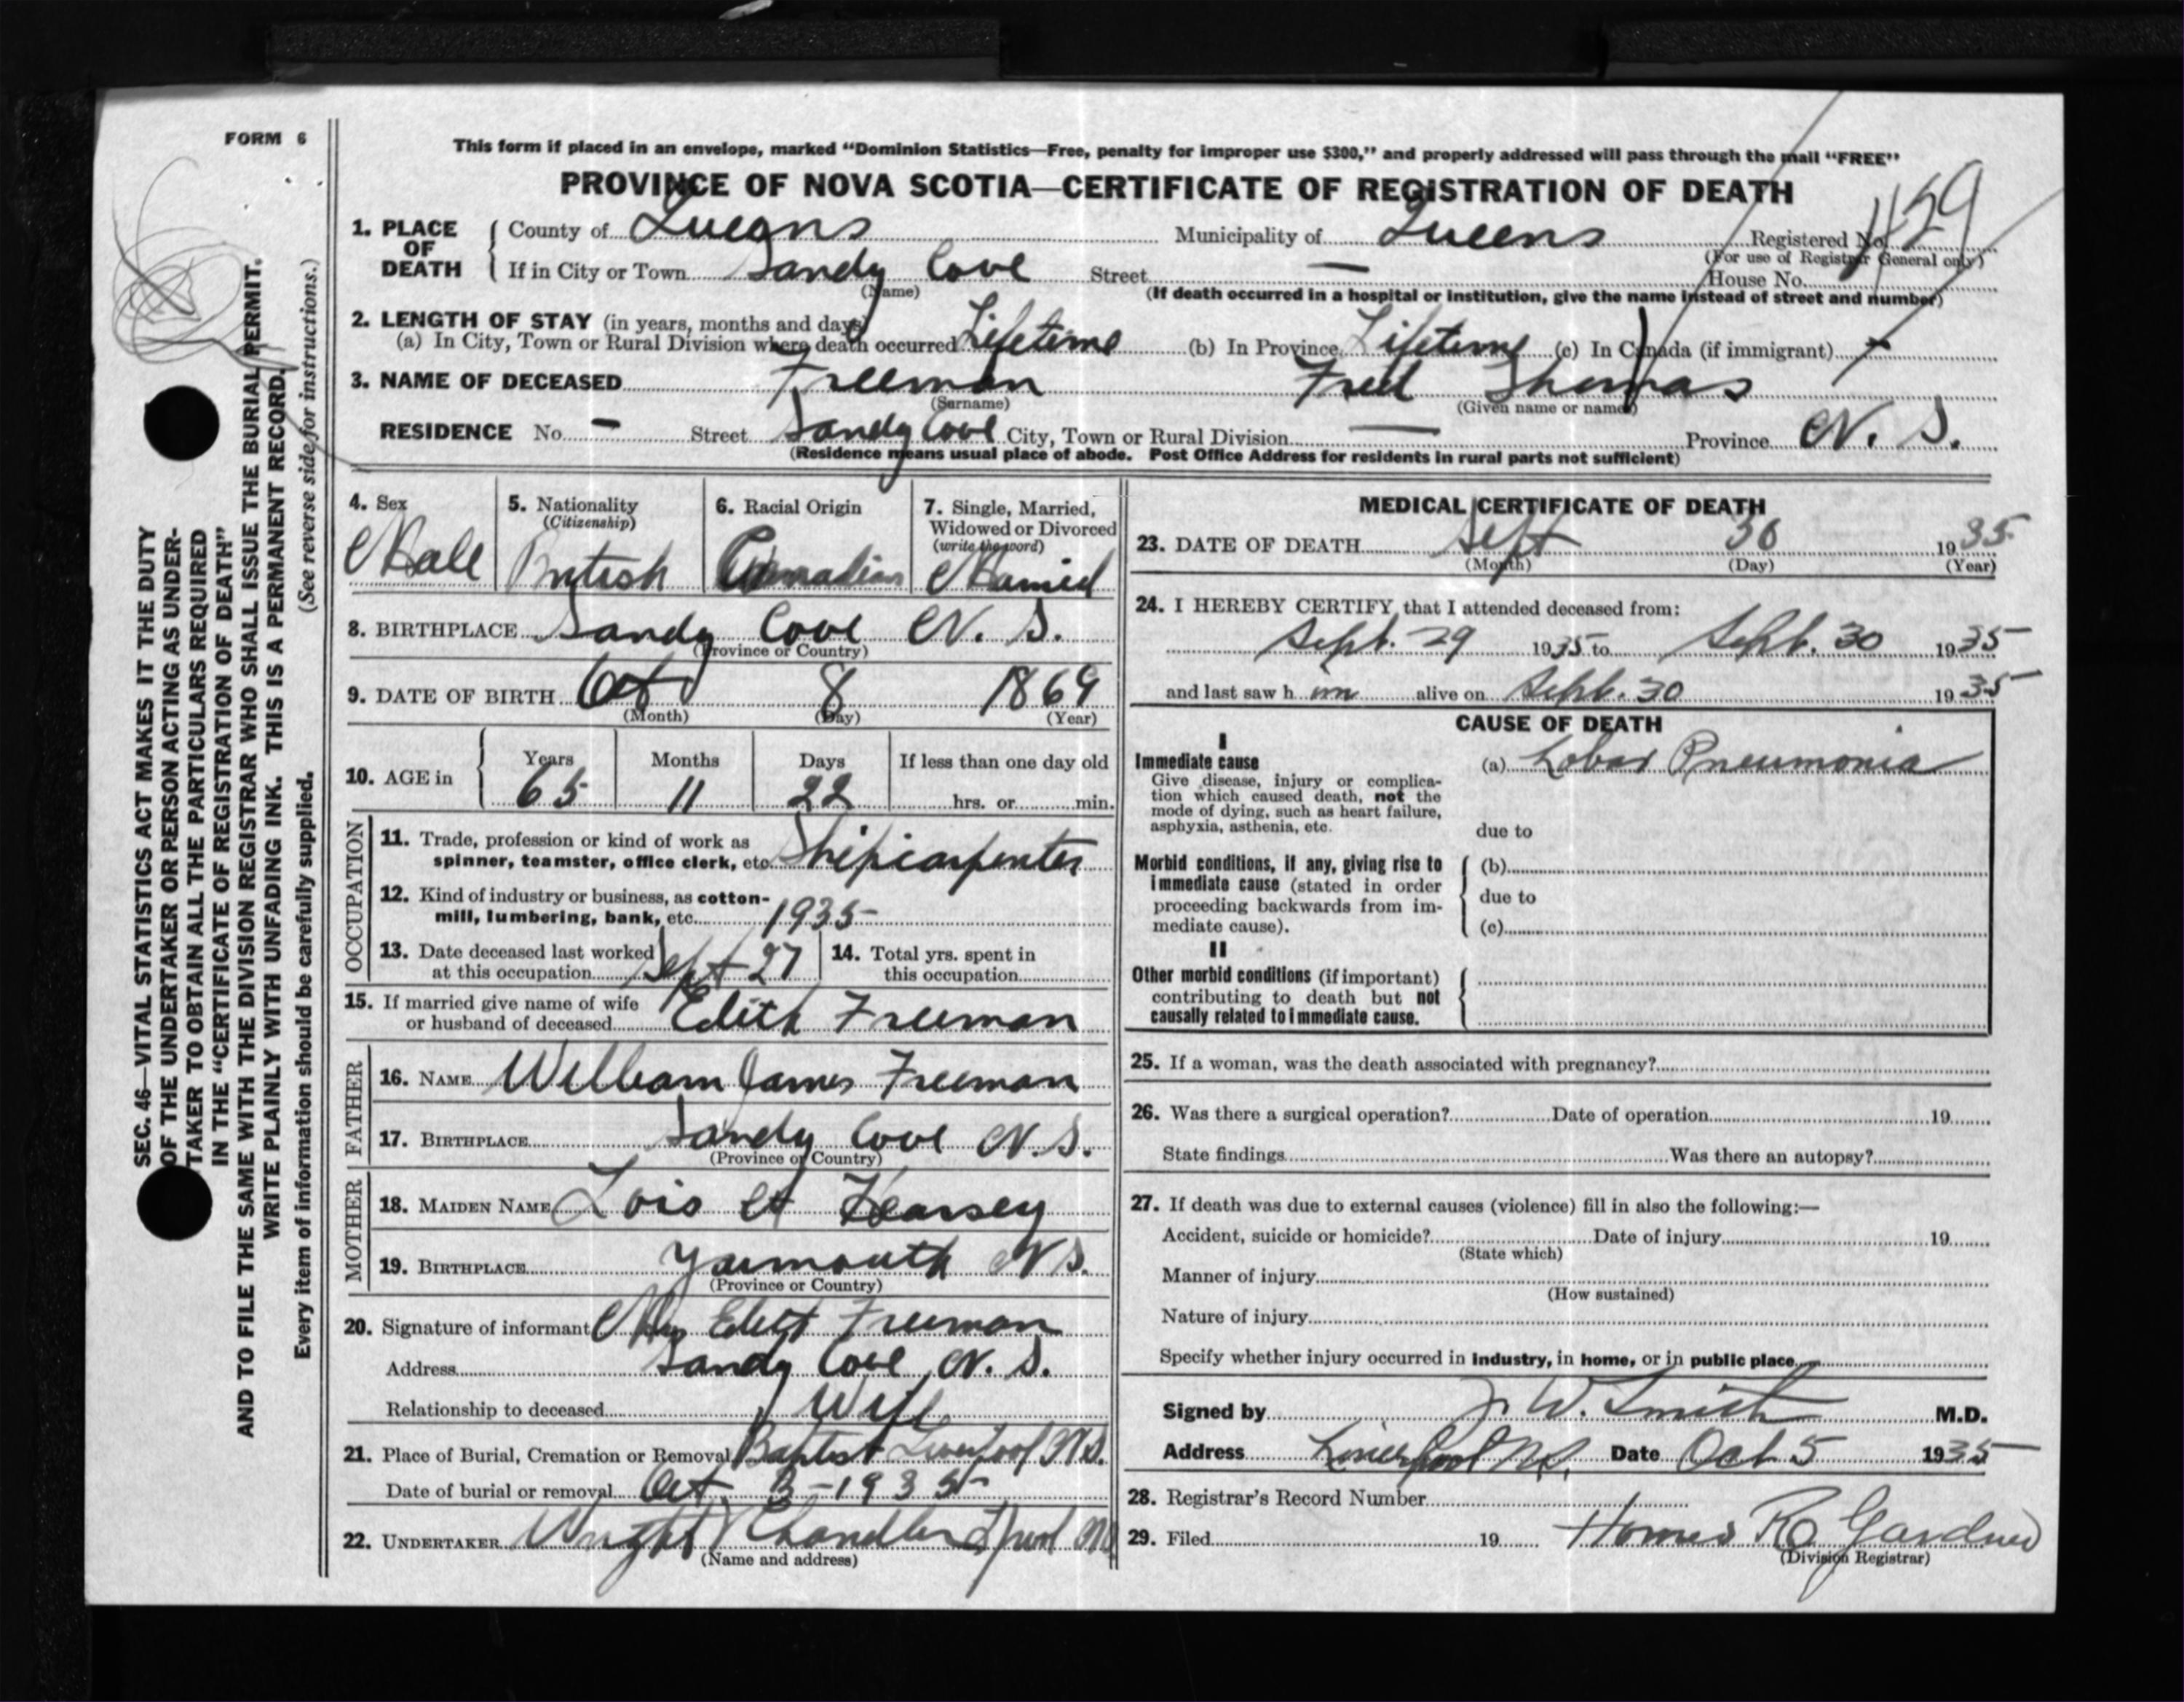 FORM 6
This form if placed in an envelope, marked “Dominion Statistics—Free, penalty for improper use $300,” and properly addressed will pass through the mail “FREE”
PROVINCE OF NOVA SCOTIA—CERTIFICATE OF REGISTRATION OF DEATH
1. PLACE OF DEATH { County of Queens Municipality of Queens Registered No. 459
(For use of Registrar General only)
If in City or Town Sandy Cove Street — House No.
(Name) (If death occurred in a hospital or institution, give the name instead of street and number)
2. LENGTH OF STAY (in years, months and days)
(a) In City, Town or Rural Division where death occurred Lifetime (b) In Province Lifetime (c) In Canada (if immigrant)
3. NAME OF DECEASED Freeman Fred Thomas
(Surname) (Given name or names)
RESIDENCE No. — Street Sandy Cove City, Town or Rural Division — Province N. S.
(Residence means usual place of abode. Post Office Address for residents in rural parts not sufficient)
4. Sex Male
5. Nationality (Citizenship) British
6. Racial Origin Canadian
7. Single, Married, Widowed or Divorced (write the word) Married
8. BIRTHPLACE Sandy Cove N. S.
(Province or Country)
9. DATE OF BIRTH Oct 8 1869
(Month) (Day) (Year)
10. AGE in { Years 65 Months 11 Days 22 If less than one day old hrs. or min.
OCCUPATION
11. Trade, profession or kind of work as
spinner, teamster, office clerk, etc. Shipcarpenter
12. Kind of industry or business, as cotton-
mill, lumbering, bank, etc. 1935
13. Date deceased last worked
at this occupation Sept 27
14. Total yrs. spent in
this occupation
15. If married give name of wife
or husband of deceased Edith Freeman
FATHER
16. NAME William James Freeman
17. BIRTHPLACE Sandy Cove N. S.
(Province or Country)
MOTHER
18. MAIDEN NAME Lois A
19. BIRTHPLACE Yarmouth N S.
(Province or Country)
20. Signature of informant Mrs Edith Freeman
Address Sandy Cove N. S.
Relationship to deceased Wife
21. Place of Burial, Cremation or Removal Baptist Liverpool N.S.
Date of burial or removal Oct 3-1935
22. UNDERTAKER Wright Chandler
(Name and address)
MEDICAL CERTIFICATE OF DEATH
23. DATE OF DEATH Sept 30 1935
(Month) (Day) (Year)
24. I HEREBY CERTIFY that I attended deceased from:
Sept. 29 1935 to Sept. 30 1935
and last saw h im alive on Sept. 30 1935
CAUSE OF DEATH
I
Immediate cause
Give disease, injury or complica-
tion which caused death, not the
mode of dying, such as heart failure,
asphyxia, asthenia, etc.
(a) Lobar Pneumonia
due to
Morbid conditions, if any, giving rise to
immediate cause (stated in order
proceeding backwards from im-
mediate cause).
(b)
due to
(c)
II
Other morbid conditions (if important)
contributing to death but not
causally related to immediate cause.
25. If a woman, was the death associated with pregnancy?
26. Was there a surgical operation? Date of operation 19
State findings Was there an autopsy?
27. If death was due to external causes (violence) fill in also the following:—
Accident, suicide or homicide? Date of injury 19
(State which)
Manner of injury
(How sustained)
Nature of injury
Specify whether injury occurred in industry, in home, or in public place
Signed by J. W. Smith M.D.
Address Liverpool N.S. Date Oct 5 1935
28. Registrar's Record Number
29. Filed 19 R Gardner
(Division Registrar)
SEC. 46—VITAL STATISTICS ACT MAKES IT THE DUTY
OF THE UNDERTAKER OR PERSON ACTING AS UNDER-
TAKER TO OBTAIN ALL THE PARTICULARS REQUIRED
IN THE “CERTIFICATE OF REGISTRATION OF DEATH”
AND TO FILE THE SAME WITH THE DIVISION REGISTRAR WHO SHALL ISSUE THE BURIAL PERMIT.
WRITE PLAINLY WITH UNFADING INK. THIS IS A PERMANENT RECORD.
Every item of information should be carefully supplied. (See reverse side for instructions.)